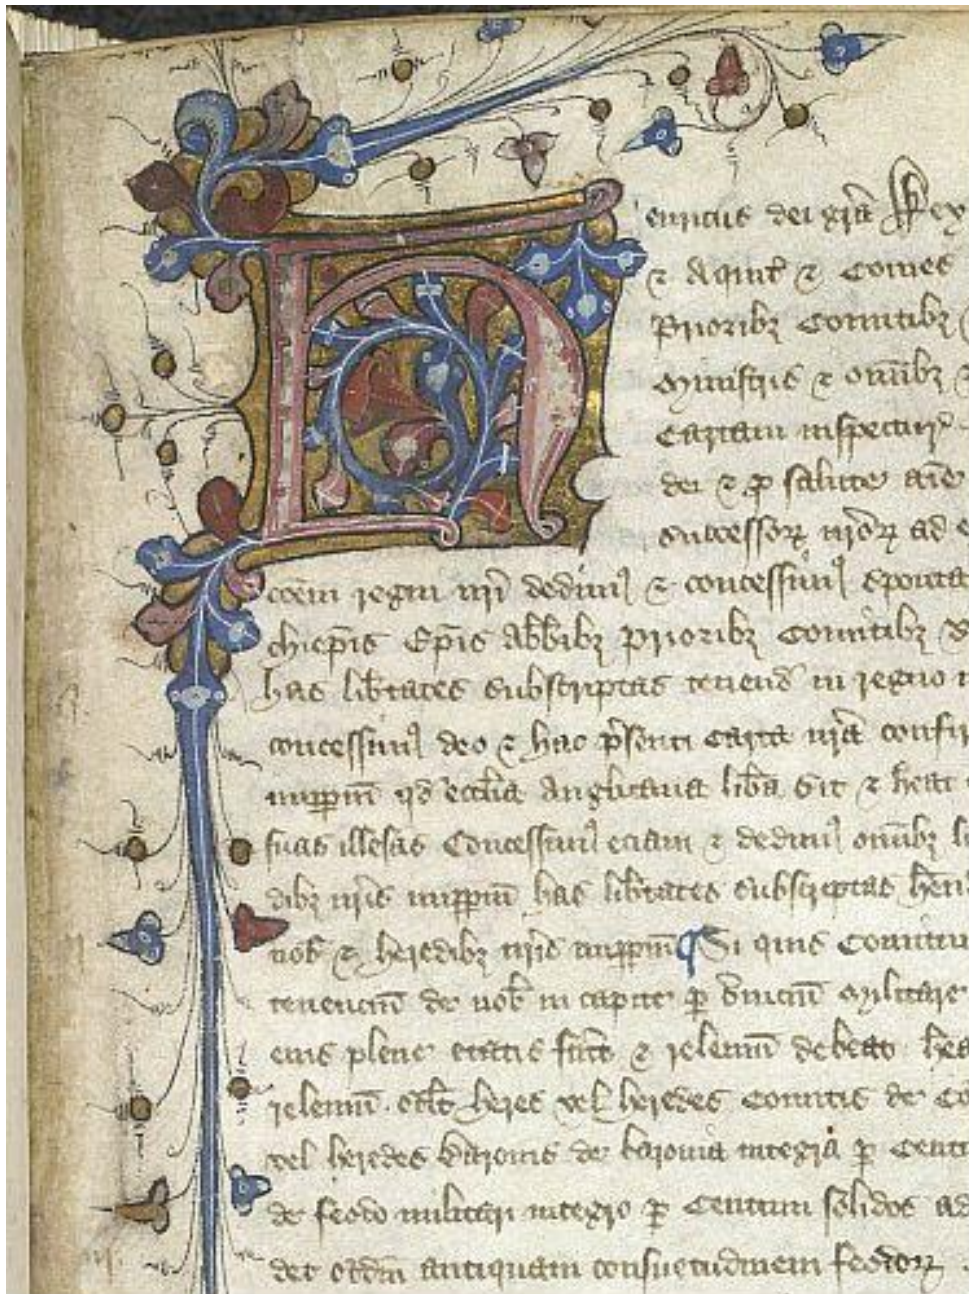 Henricus dei gr̃a Rex
⁊ Aquit̃ ⁊ Comes
Priorib⁊ Comitib⁊
Ministris ⁊ om̃ib⁊
Cartam inspectur̃
dei ⁊ ꝑ salute aĩe
successoꝝ nr̃oꝝ ad
c̃oem regni nr̃i dedim⁹ ⁊ concessim⁹ sponta
chiep̃is Ep̃is Abb̃ib⁊ Priorib⁊ Comitib⁊
has lib̃tates subscriptas tenend̃ in regno
concessim⁹ deo ⁊ hac p̃senti carta nr̃a confir
imꝑpm̃ qd̃ eccl̃ia Anglicana lib̃a sit ⁊ h̃eat
suas illesas Concessim⁹ eciam ⁊ dedim⁹ om̃ib⁊ li
dib⁊ nr̃is imꝑpm̃ has lib̃tates subscriptas h̃end
nob̃ ⁊ heredib⁊ nr̃is imꝑpm̃ ¶ Si quis Comitu
tenenciũ de nob̃ in capite ꝑ s̃uiciũ militare
eius plene etatis fũit ⁊ releuiũ debeat
releuiũ sc̃lt heres vel heredes Comitis de Co
vel heredes Baronis de baronia integra ꝑ Cent
de feodo militari integro ꝑ Centum solidos ad
det sc̃dm̃ antiquam consuetudinem feodoꝝ